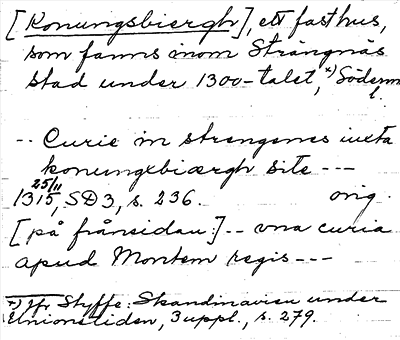 [Konungsbiergh], ett fasthus,
som fanns inom Strängnäs
stad under 1300-talet, *) Söderm
l.
-- Curie in strengenes iuxta
konungxbiærgh site ---
25/11
1315, SD3, s. 236. orig.
[på frånsidan:] -- vna curia
apud Montem regis ---
*) Jfr Styffe: Skandinavien under
Unionstiden, 3 uppl., s. 279.